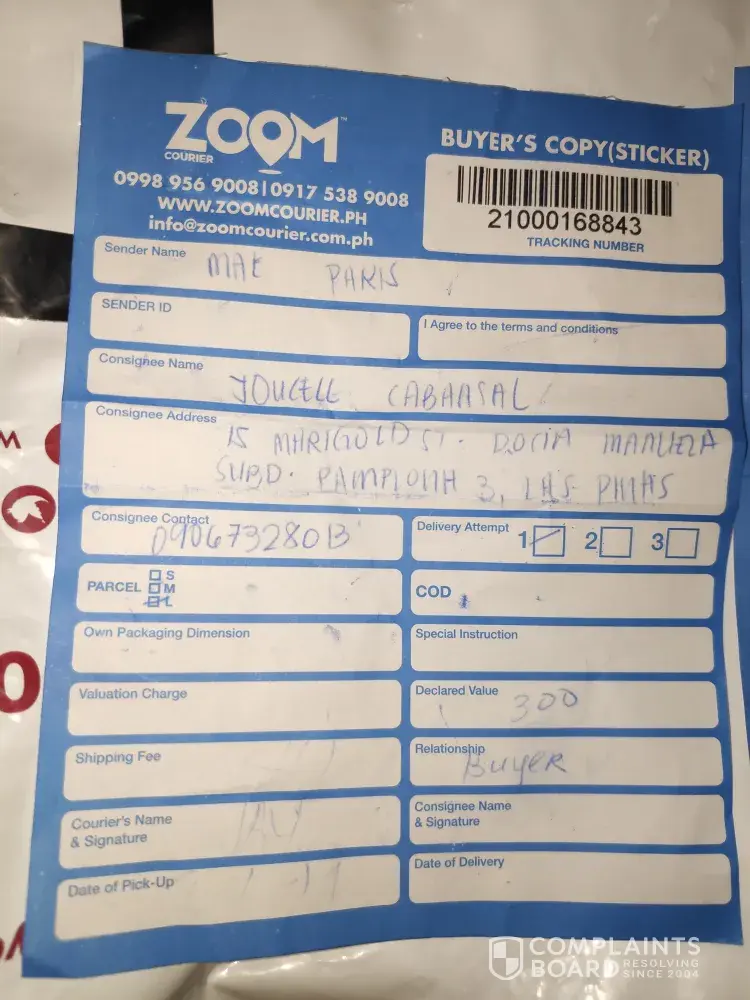 ZOOM™
COURIER
0998 956 9008 | 0917 538 9008
WWW.ZOOMCOURIER.PH
info@zoomcourier.com.ph
BUYER'S COPY(STICKER)
21000168843
TRACKING NUMBER
Sender Name MAE PARIS
SENDER ID
I Agree to the terms and conditions
Consignee Name JOUCELL
Consignee Address 15 MARIGOLD ST. MANUELA
SUBD. PAMPLONA 3, LAS PIÑAS
Consignee Contact
Delivery Attempt 1 2 3
PARCEL S
M
L
COD
Own Packaging Dimension
Special Instruction
Valuation Charge
Declared Value 300
Shipping Fee
Relationship BUYER
Courier's Name
& Signature
Consignee Name
& Signature
Date of Pick-Up
Date of Delivery
COMPLAINTS
BOARD RESOLVING
SINCE 2004